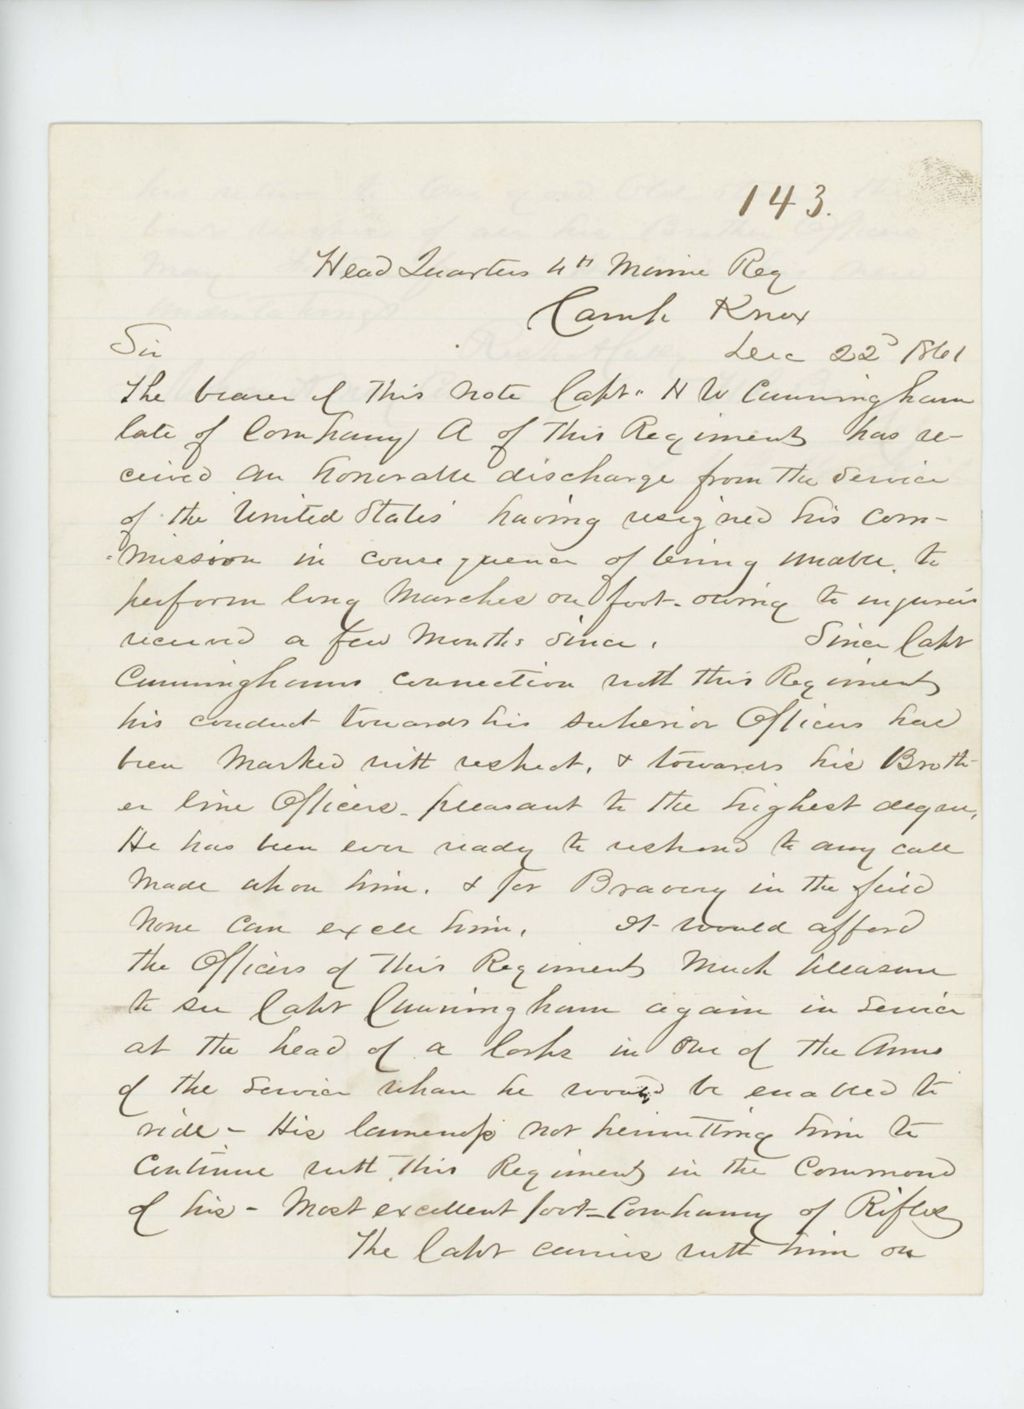 143.
Head Quarters 4th Maine Reg
Camp Knox
Sir Dec 22d 1861
The bearer of this note Capt. H W Cunningham
late of Company A of this Regiment has re-
ceived an honorable discharge from the service
of the United States having resigned his com-
-mission in consequence of being unable to
perform long marches on foot - owing to injuries
received a few Months since. Since Capt
Cunninghams connection with this Regiment
his conduct towards his superior Officers has
been marked with respect, & towards his Broth-
er line Officers - pleasant to the highest degree,
He has been ever ready to respond to any call
made upon him, & for Bravery in the field
None can excell him, It would afford
the Officers of this Regiment Much pleasure
to see Capt Cunningham again in service
at the head of a Corps in one of the Arms
of the service whare he would be enabled to
ride - His lameness not permitting him to
Continue with this Regiment in the Command
of his - Most excellent foot - Company of Rifles
The Capt carries with him on